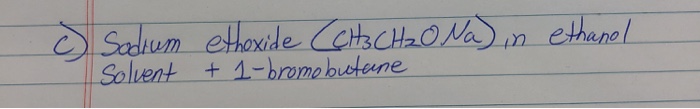 c) Sodium ethoxide (CH3CH2ONa) in ethanol
Solvent + 1-bromobutane